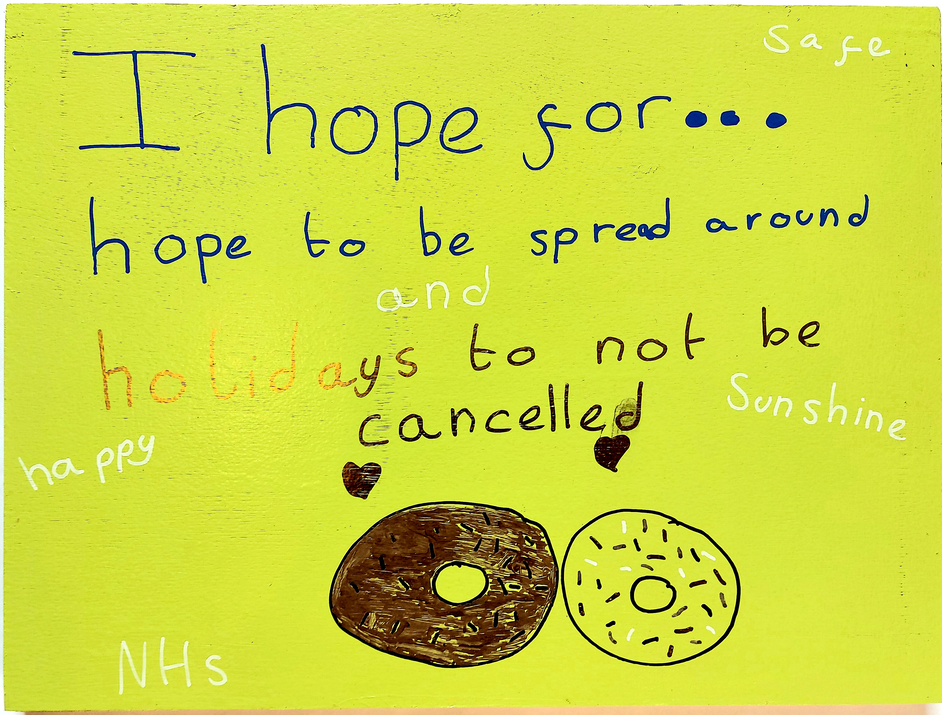 Safe
I hope for...
hope to be spread around
and
holidays to not be
cancelled
Sunshine
happy
NHs